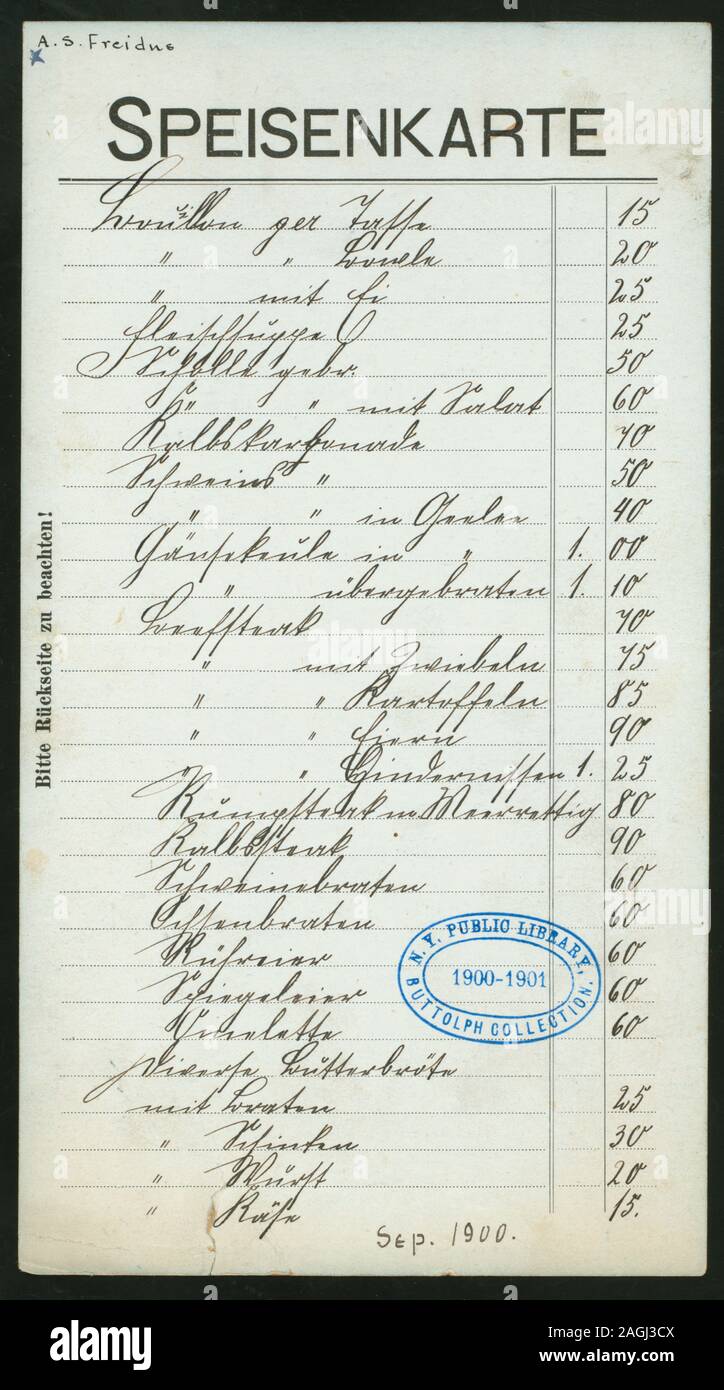 A. S. Freidus
SPEISENKARTE
Bouillon per Tasse 15
" " Bowle 20
" mit Ei 25
Fleischsuppe 25
Scholle gebr. 50
" " mit Salat 60
Kalbskarbonade 70
Schweins " 50
" " in Geelee 40
Gänsekeule in " 1. 00
" übergebraten 1. 10
Beefsteak 70
" mit Zwiebeln 75
" " Kartoffeln 85
" " Eiern 90
" " Hindernissen 1. 25
Rumpsteak m. Meerrettig 80
Kalbssteak 90
Schweinebraten 60
Ochsenbraten 60
Rühreier 60
Spiegeleier 60
Omelette 60
Diverse Butterbröte
mit Braten 25
" Schinken 30
" Wurst 20
" Käse 15.
Sep. 1900.
Bitte Rückseite zu beachten!
N. Y. PUBLIC LIBRARY,
1900-1901
BUTTOLPH COLLECTION.
alamy
alamy
Image ID: 2AGJ3CX
www.alamy.com